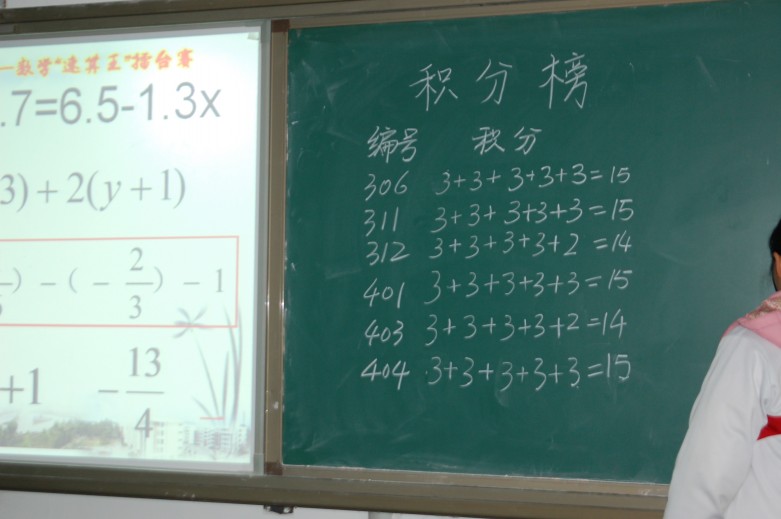 —数学“速算王”擂台赛
.7=6.5-1.3x
3)+2(y+1)
)-(-2/3)-1
+1 -13/4
积分榜
编号 积分
306 3+3+3+3+3=15
311 3+3+3+3+3=15
312 3+3+3+3+2=14
401 3+3+3+3+3=15
403 3+3+3+3+2=14
404 3+3+3+3+3=15